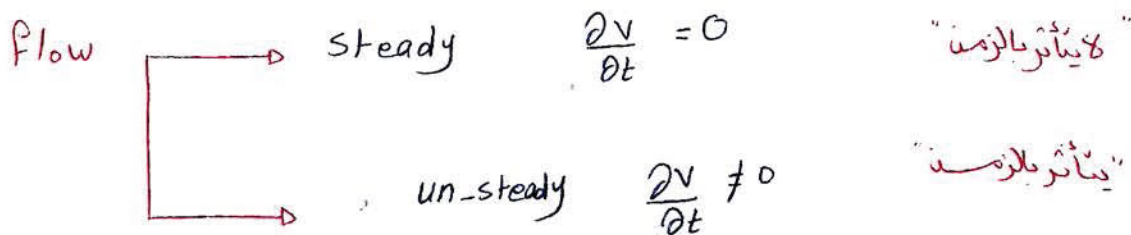 flow steady ∂v/∂t = 0 "لا يتأثر بالزمن"
un-steady ∂v/∂t ≠ 0 "يتأثر بالزمن"